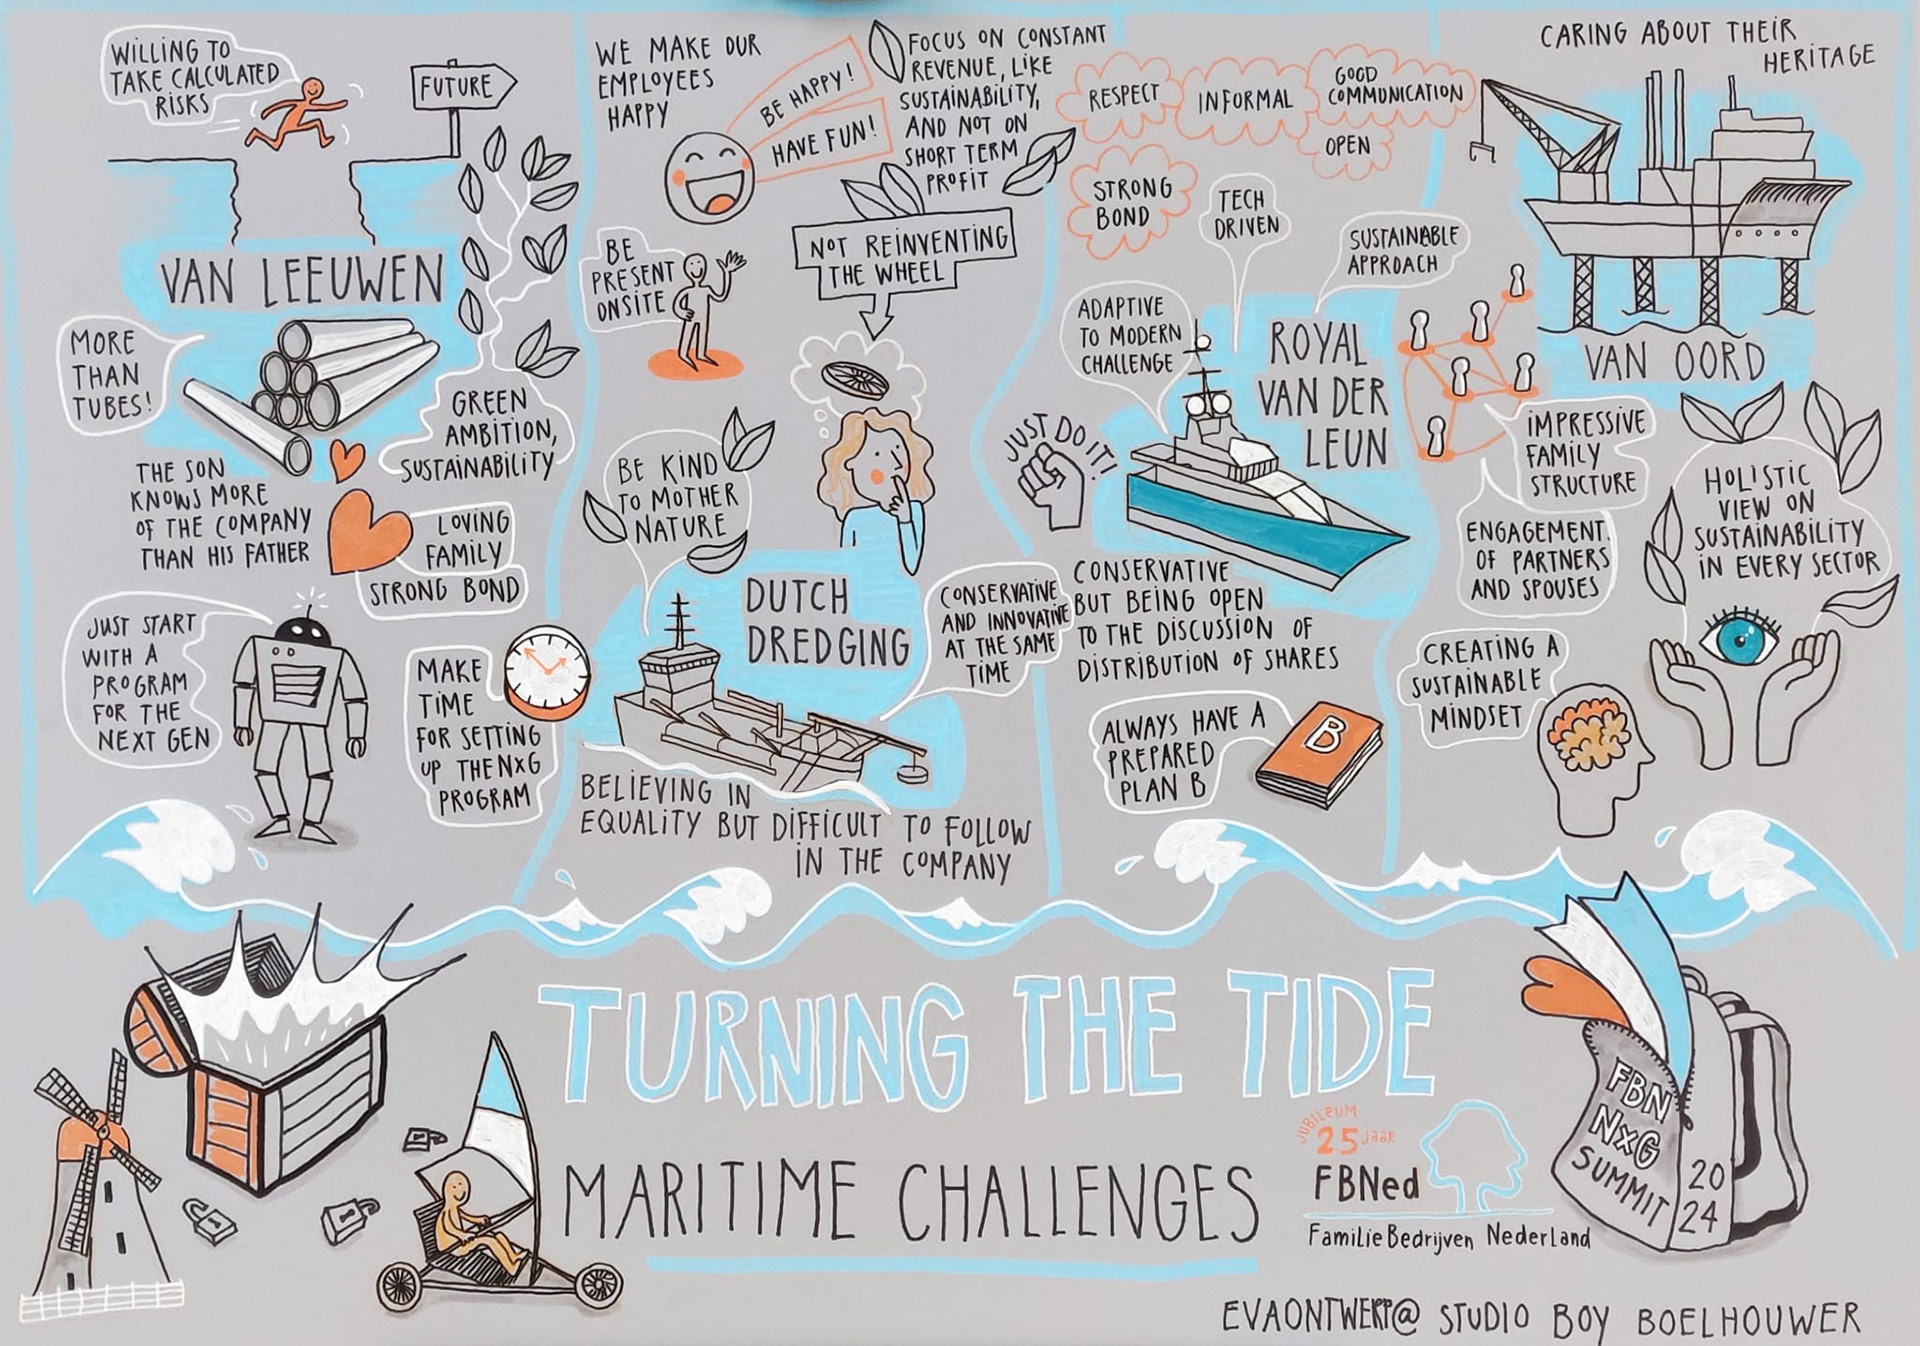 WILLING TO
TAKE CALCULATED
RISKS
FUTURE
VAN LEEUWEN
MORE
THAN
TUBES!
GREEN
AMBITION,
SUSTAINABILITY
THE SON
KNOWS MORE
OF THE COMPANY
THAN HIS FATHER
LOVING
FAMILY
STRONG BOND
JUST START
WITH A
PROGRAM
FOR THE
NEXT GEN
MAKE
TIME
FOR SETTING
UP THE NXG
PROGRAM
WE MAKE OUR
EMPLOYEES
HAPPY
BE HAPPY!
HAVE FUN!
FOCUS ON CONSTANT
REVENUE, LIKE
SUSTAINABILITY,
AND NOT ON
SHORT TERM
PROFIT
BE
PRESENT
ONSITE
NOT REINVENTING
THE WHEEL
BE KIND
TO MOTHER
NATURE
DUTCH
DREDGING
CONSERVATIVE
AND INNOVATIVE
AT THE SAME
TIME
BELIEVING IN
EQUALITY BUT DIFFICULT TO FOLLOW
IN THE COMPANY
RESPECT
INFORMAL
GOOD
COMMUNICATION
OPEN
STRONG
BOND
TECH
DRIVEN
SUSTAINABLE
APPROACH
ADAPTIVE
TO MODERN
CHALLENGE
ROYAL
VAN DER
LEUN
JUST DO IT!
CONSERVATIVE
BUT BEING OPEN
TO THE DISCUSSION OF
DISTRIBUTION OF SHARES
ALWAYS HAVE A
PREPARED
PLAN B
B
CARING ABOUT THEIR
HERITAGE
VAN OORD
IMPRESSIVE
FAMILY
STRUCTURE
ENGAGEMENT
OF PARTNERS
AND SPOUSES
HOLISTIC
VIEW ON
SUSTAINABILITY
IN EVERY SECTOR
CREATING A
SUSTAINABLE
MINDSET
TURNING THE TIDE
MARITIME CHALLENGES
JUBILEUM
25 jaar
FBNed
FamilieBedrijven Nederland
FBN
NXG
SUMMIT
20
24
EVAONTWERP@ STUDIO BOY BOELHOUWER